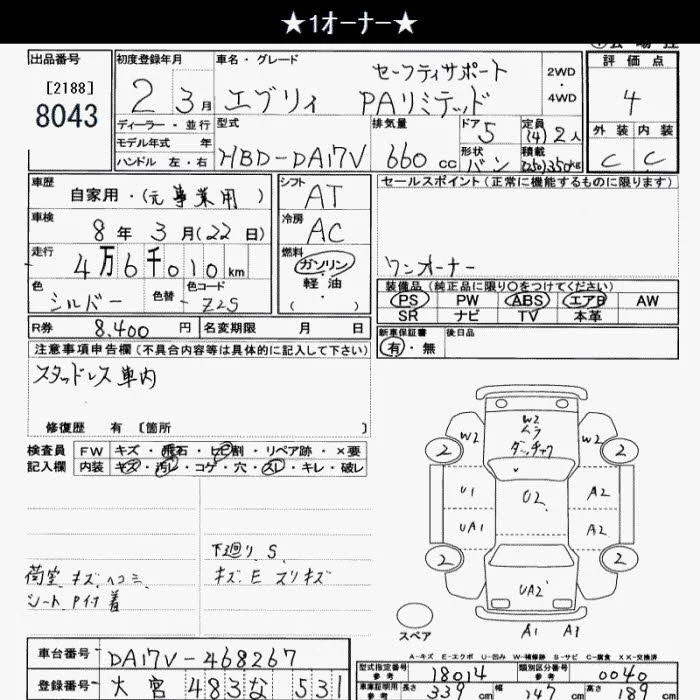 ★1オーナー★
出品番号
[2188]
8043
初度登録年月
2 3月
ディーラー・並行
モデル年式 年
ハンドル 左・右
車名・グレード
セーフティサポート
エブリィ PAリミテッド
2WD
・
4WD
型式
HBD-DA17V
排気量
660 cc
ドア 5
形状 バン
定員
(4) 2人
積載
(250)350kg
評価点
4
外装 内装
C C
車歴
自家用・(元事業用)
車検
8年 3月(22日)
走行
4万6千010km
色
シルバー
色替
色コード
Z2S
R券 8,400円
名変期限 月 日
シフト
AT
冷房
AC
燃料
ガソリン・
軽油・
( )
セールスポイント(正常に機能するものに限ります)
ワンオーナー
装備品(純正品に限り○をつけてください)
PS PW ABS エアB AW
SR ナビ TV 本革
新車保証書
有・無
後日品
注意事項申告欄(不具合内容等は具体的に記入して下さい)
スタッドレス車内
修復歴 有 [箇所 ]
検査員
記入欄
FW キズ・飛石・ヒビ割・リペア跡・×要
内装 キズ・汚レ・コゲ・穴・スレ・キレ・破レ
荷室 キズ ヘコミ
シート
下廻り S
キズ E スリキズ
W2
ムラ
W2
W2
2
2
U1
U2
A2
UA1
A2
2
2
UA2
スペア
A1 A3
A-キズ E-エクボ U-凹み W-補修跡 S-サビ C-腐食 XX-交換済
車台番号 DA17V-468267
登録番号 大宮 483 な 531
型式指定番号
参考
18014
類別区分番号
参考
0040
車庫証明用
参考
長さ 339 cm
幅 147 cm
高さ 189 cm